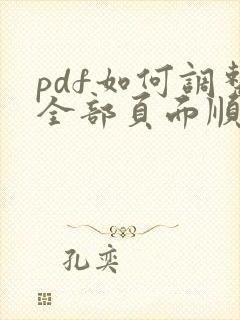 pdf如何調整
全部頁面順
孔奕